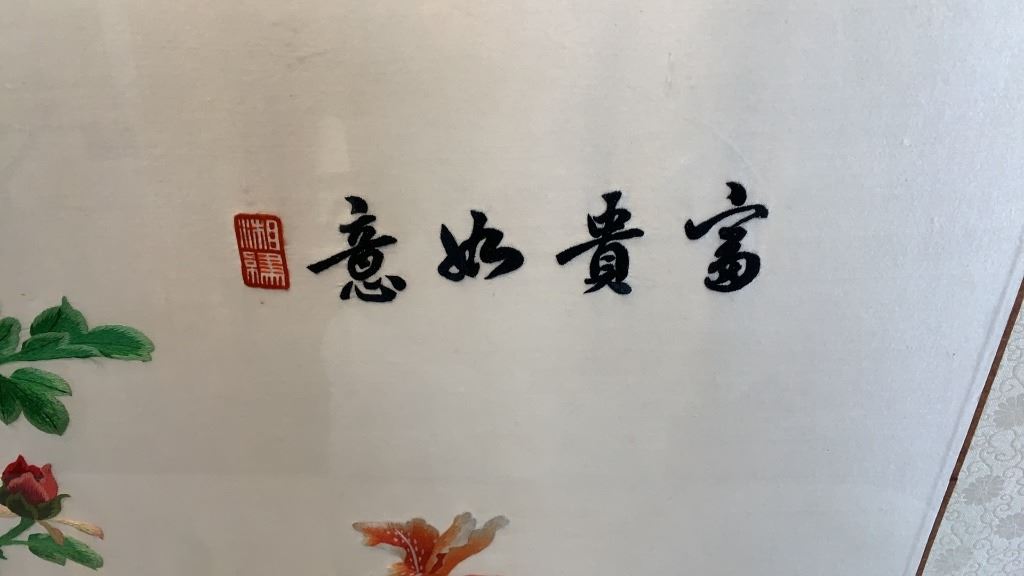 富貴如意
湘繡